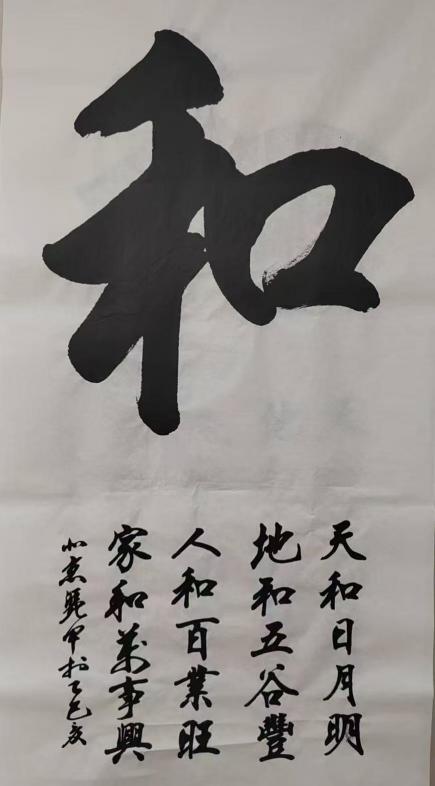 和
天和日月明
地和五谷豐
人和百業旺
家和萬事興
乙巳夏